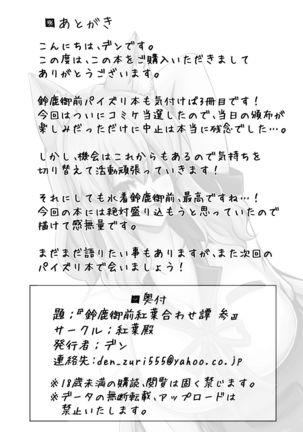 あとがき
こんにちは、デンです。
この度は、この本をご購入いただきまして
ありがとうございます。
鈴鹿御前パイズリ本も気付けば3冊目です！
今回はついにコミケ当選したので、当日の頒布が
楽しみだっただけに中止は本当に残念でした…。
しかし、機会はこれからもあるので気持ちを
切り替えて活動頑張っていきます！
それにしても水着鈴鹿御前、最高ですね…！
今回の本には絶対盛り込もうと思っていたので
描けて感無量です。
まだまだ語りたい事もありますが、また次回の
パイズリ本で会いましょう！
奥付
題；『鈴鹿御前紅葉合わせ譚 参』
サークル；紅葉殿
発行者；デン
連絡先；den_zuri555@yahoo.co.jp
※18歳未満の購読、閲覧は固く禁じます。
※データの無断転載、アップロードは
禁止いたします。